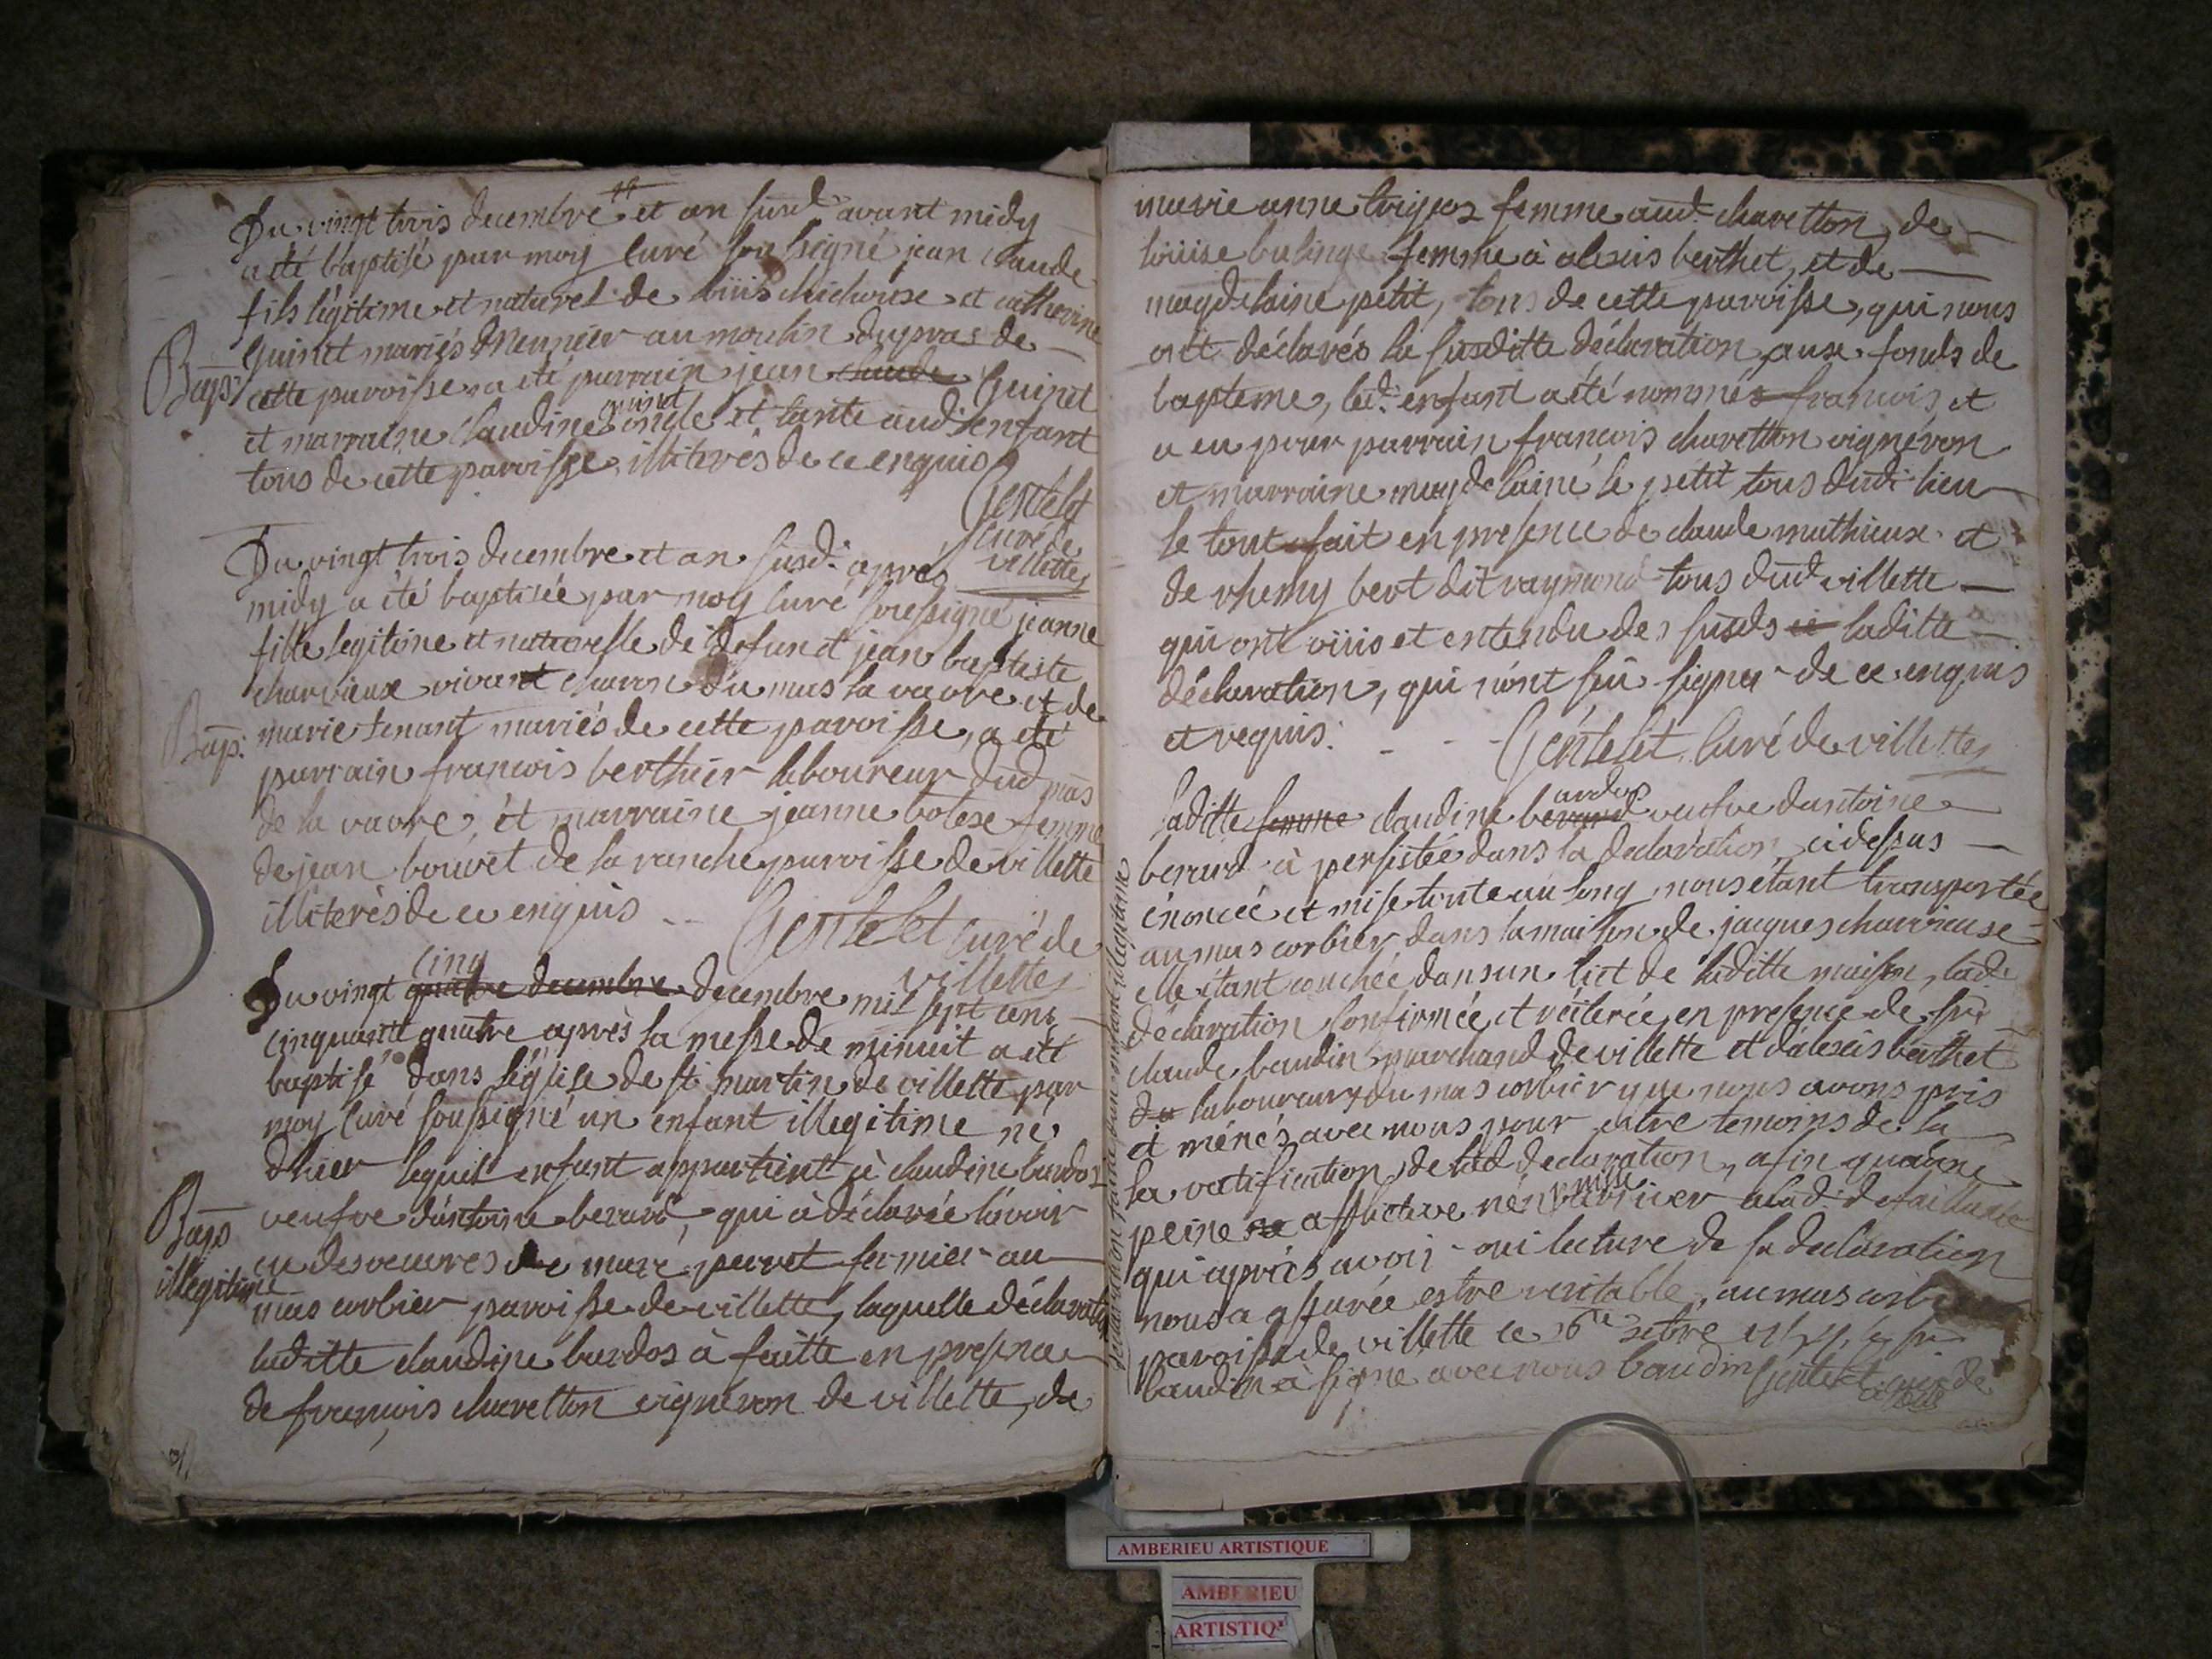 Du vingt trois decembre et an susd. avant midy
a été baptisé par moy curé soussigné jean claude
fils légitime et naturel de loüis chichoux et catherine
Guinet mariés Meunier au moulin dupras de
Bap: cette paroisse, a été parrain jean claude Guinet
et marraine claudine guinet oncle et tante aud. enfant
tous de cette paroisse illiterés de ce enquis
Gentelet
curé de
villettes
Du vingt trois decembre et an susd. apres
midy a été baptisée par moy curé soussigné jeanne
fille legitime et naturelle de defunct jean baptiste
charvieux vivant charon du mas la vavre et de
Bap: marie tenant mariés de cette paroisse, a été
parrain francois berthier laboureur dud mas
de la vavre, et marraine jeanne femme
de jean bouvet de la ranche paroisse de villette
illiterés de ce enquis -- Gentelet curé de
villettes
Du vingt cinq quatre decembre decembre mil sept cent
cinquante quatre après la messe de minuit a été
baptisé dans l'église de st martin de villette par
moy curé soussigné un enfant illegitime né
d'hier lequel enfant appartient à claudine bardos
Bap. veufve d'antoine berard, qui à déclarée l'avoir
illegitime eu des oeuvres de marc perret fermier au
mas corbier paroisse de villette, laquelle déclaration
laditte claudine bardos à faitte en presence
de francois charetton vigneron de villette, de
marie anne femme aud. charetton, de
loüise bulinge femme à alexis berthet, et de
magdelaine petit, tous de cette paroisse, qui nous
ont déclarés la susditte déclaration, aux fonds de
bapteme, led. enfant a été nommés francois, et
a eu pour parrain francois charetton vigneron
et marraine magdelaine le petit tous dud. lieu
le tout fait en presence de claude mathieux et
de rhemy bert dit raymond tous dud villette
qui ont oüis et entendu des susds laditte
déclaration, qui n'ont sçu signer de ce enquis
et requis. - - - Gentelet curé de villettes
laditte femme claudine berard ardos veufve dantoine
berard à persistée dans la declaration ci dessus
énoncée et mise toute au long, nous étant transportée
au mas corbier, dans la maison de jacques charvieux
elle étant couchée dans un lict de laditte maison, lad.
déclaration confirmée et réiterée en presence de sr
claude baudin marchand de villette et d'alexis berthet
du laboureur du mas corbier que nous avons pris
et ménés avec nous pour estre temoins de la
la ratification de lad declaration, afin
peine afflictive n'en puisse arriver alad. defaillante
qui après avoir oui lecture de sa declaration
nous a assurée estre veritable, au mas corbier
paroisse de villette ce 26e xbre 1754, le sr
baudin à signé avec nous baudin Gentelet curé de
villette
declaration faitte d'un enfant illegitime
AMBERIEU ARTISTIQUE
AMBERIEU
ARTISTIQ